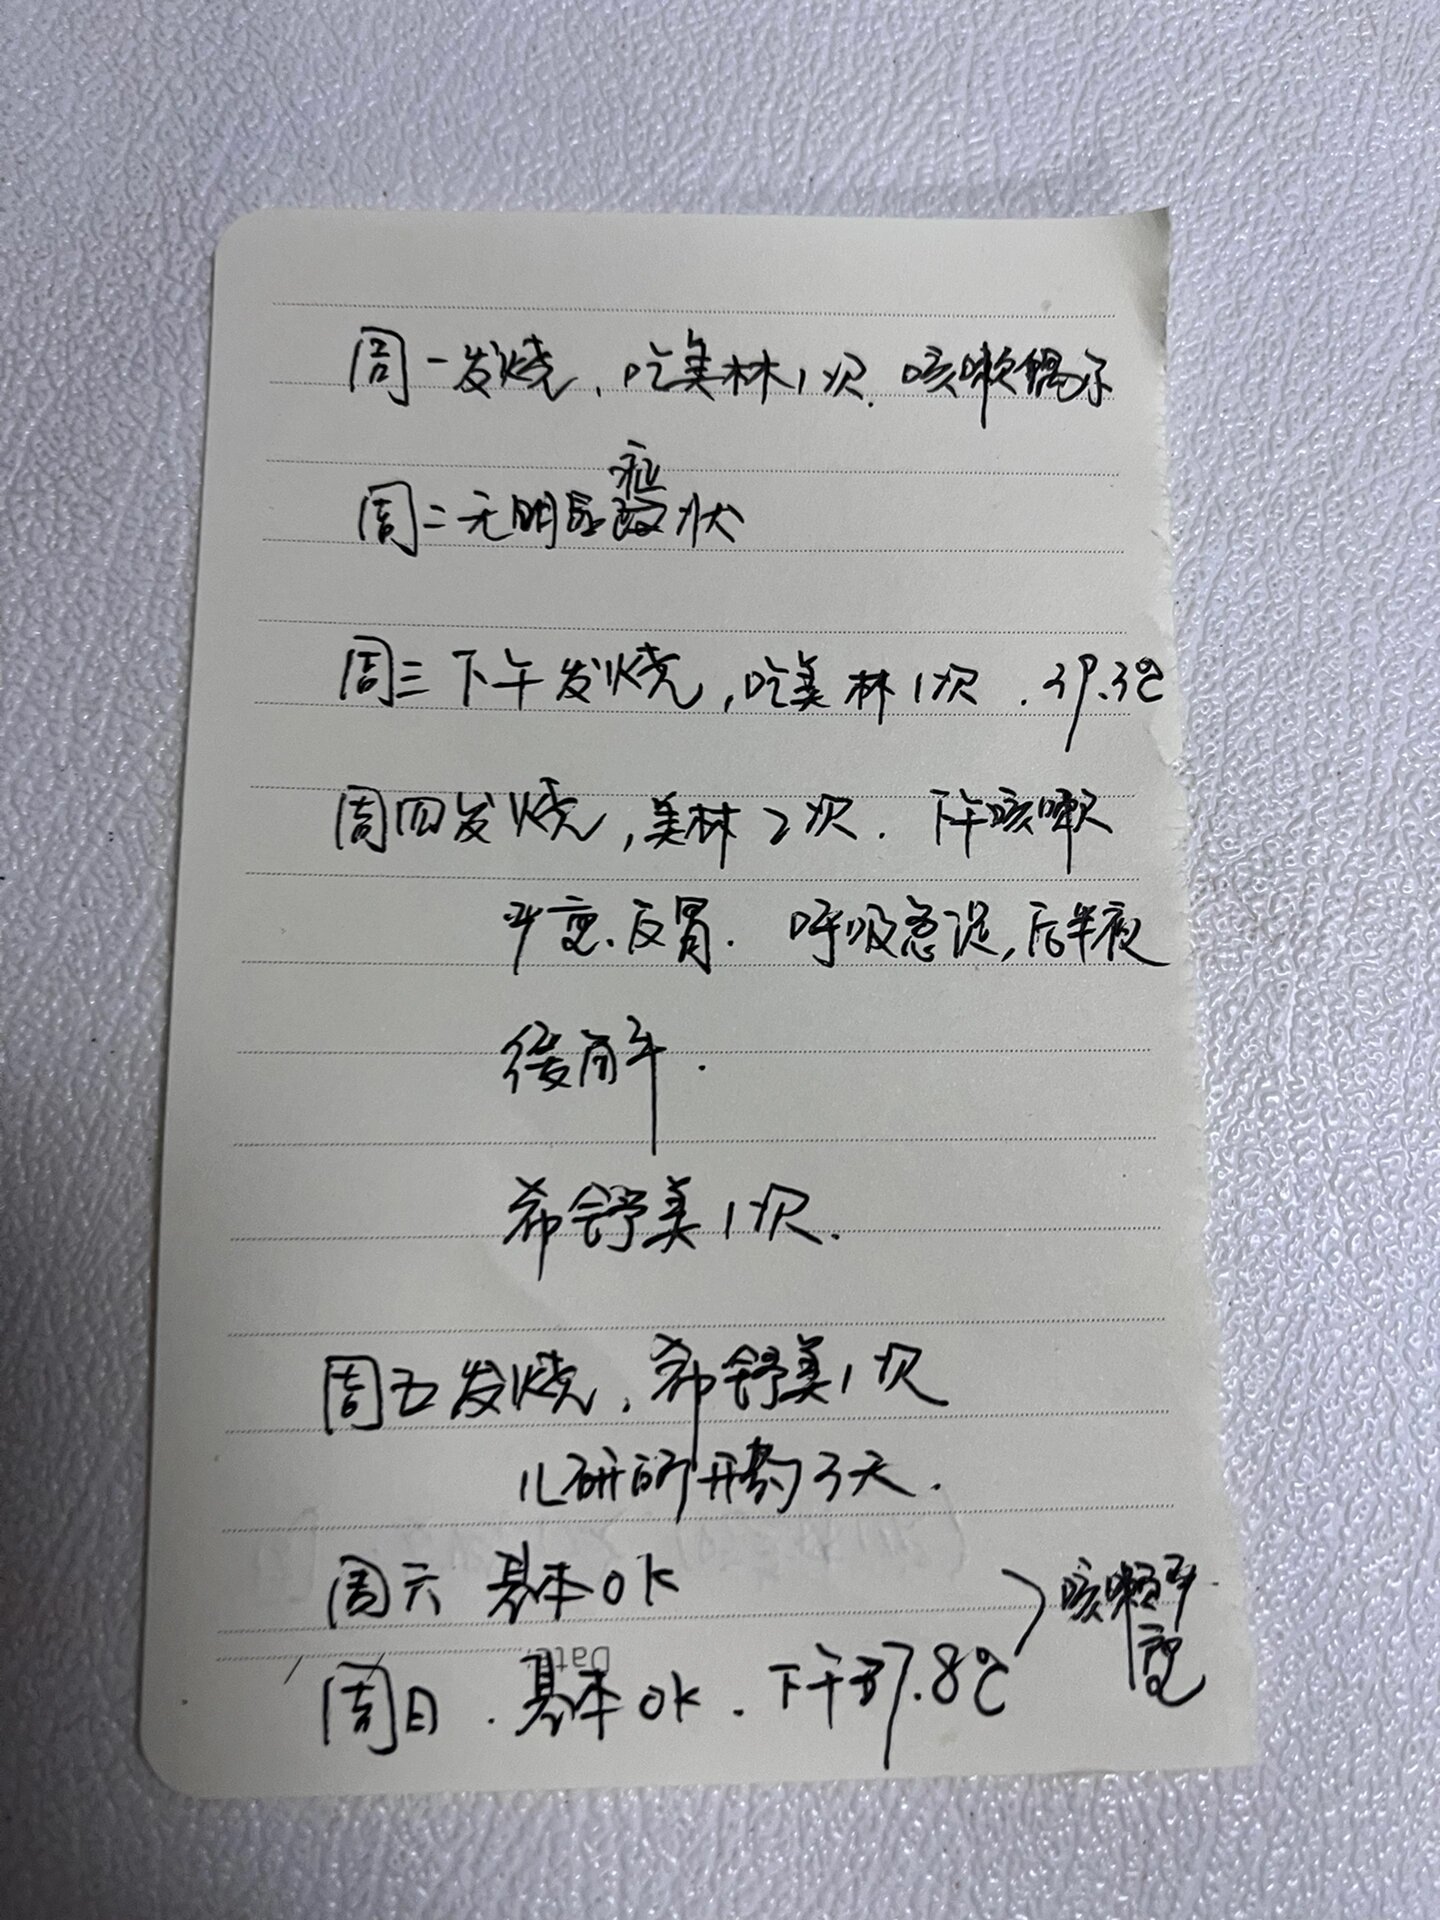 周一发烧，吃美林1次. 咳嗽偶尔
周二无明显症状
周三下午发烧，吃美林1次. 39.3℃
周四发烧，美林2次. 下午咳嗽
频、反胃. 呼吸急促，后半夜
缓解.
希舒美1次.
周五发烧，希舒美1次
儿研所开药3天.
周六 基本OK
咳嗽
周日. 基本OK. 下午37.8℃
Date